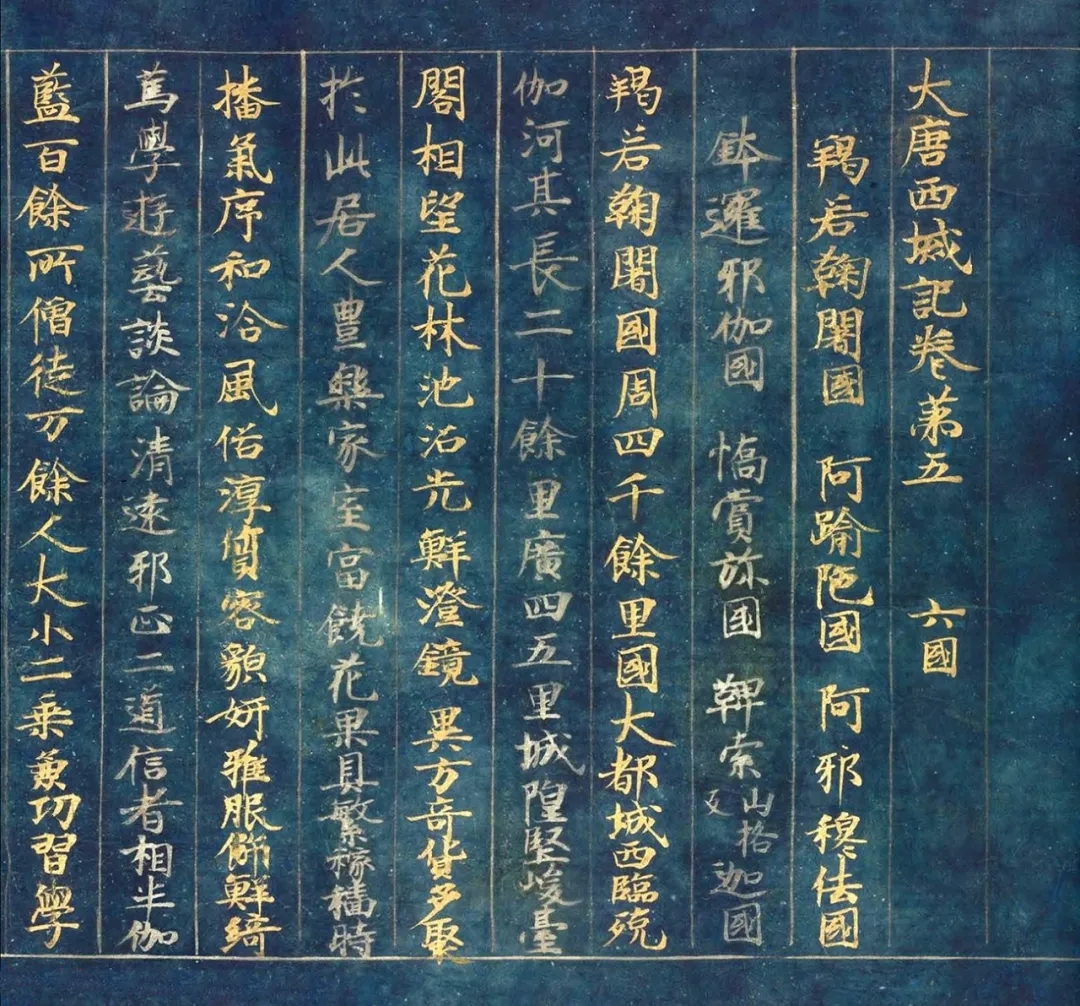 大唐西域記卷第五 六國
羯若鞠闍國 阿踰陁國 阿邪穆佉國
鉢邏邪伽國 憍賞弥國 鞞索山格反迦國
羯若鞠闍國周四千餘里國大都城西臨殑
伽河其長二十餘里廣四五里城隍堅峻臺
閣相望花林池沼光鮮澄鏡異方奇貨多聚
於此居人豊樂家室富饒花果具繁稼穡時
播氣序和洽風俗淳質容貌妍雅服飾鮮綺
篤學遊藝談論清遠邪正二道信者相半伽
藍百餘所僧徒万餘人大小二乗兼功習學